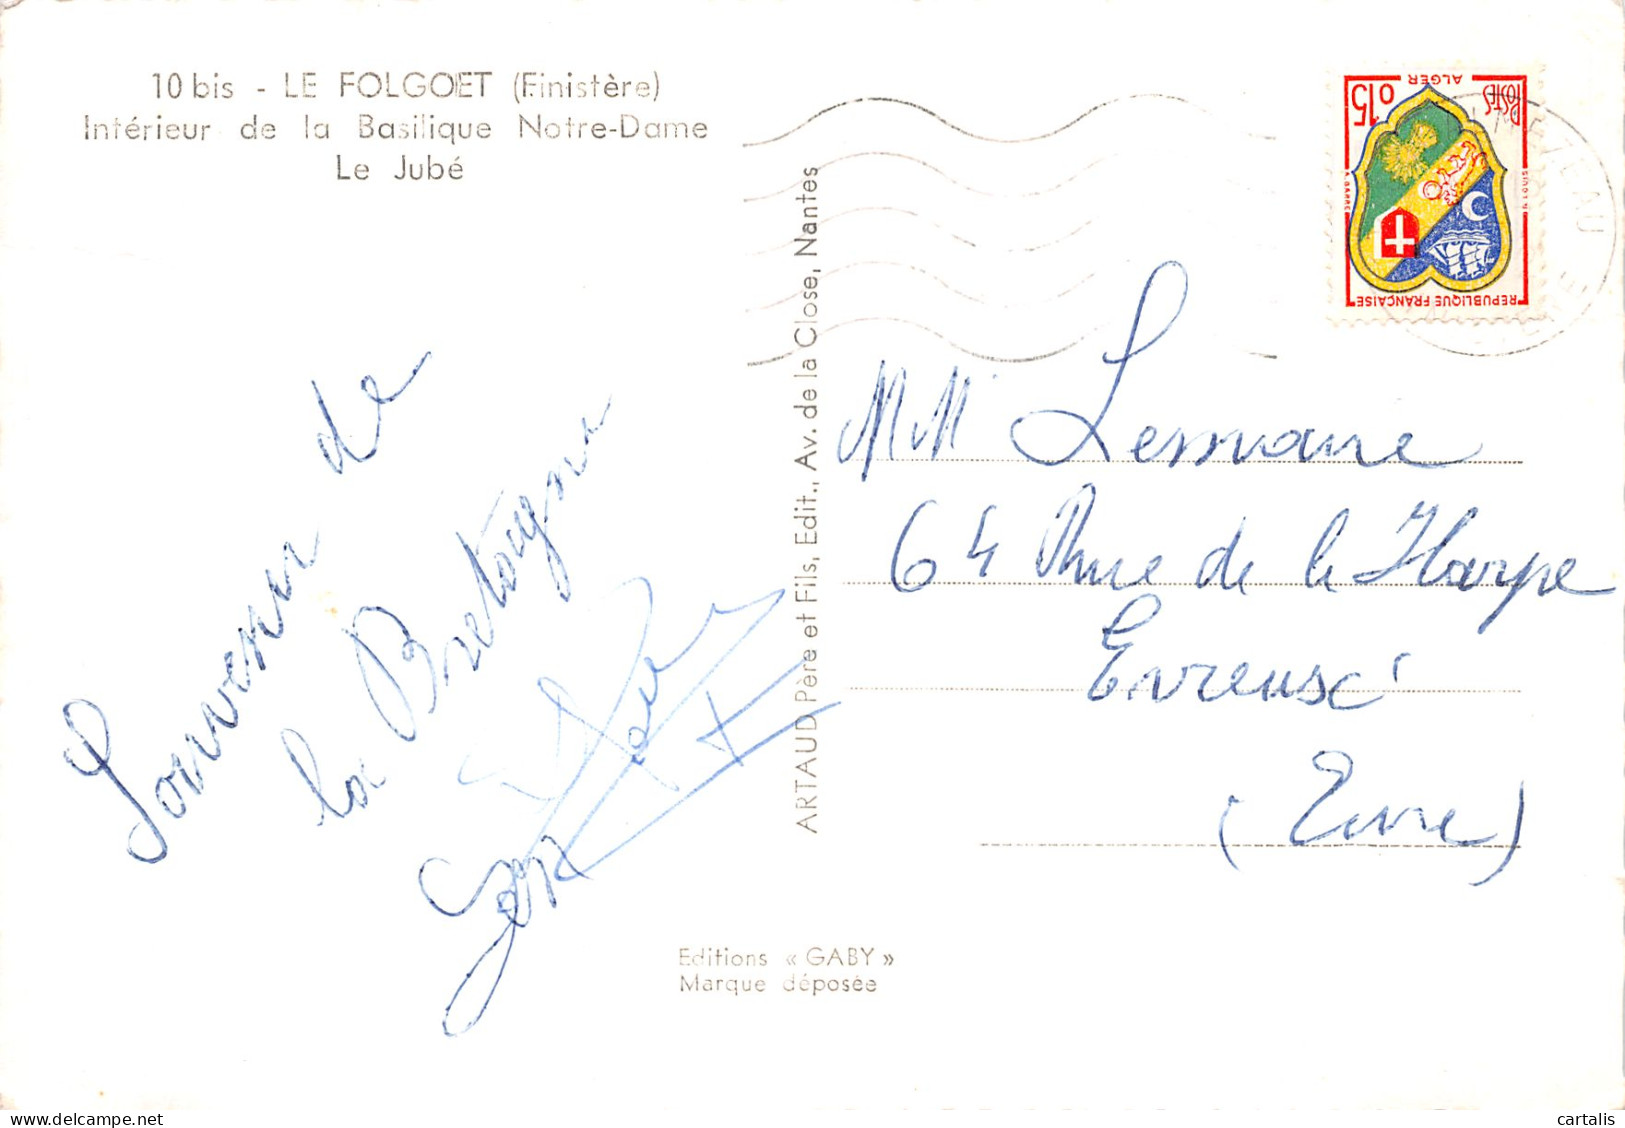 10 bis - LE FOLGOET (Finistère)
Intérieur de la Basilique Notre-Dame
Le Jubé
Souvenir de
la Bretagne
ARTAUD Père et Fils, Edit., Av. de la Close, Nantes
Editions « GABY »
Marque déposée
ALGER
POSTES
0,15
REPUBLIQUE FRANÇAISE
MM Lemaire
64 Rue de la Harpe
Evreux
(Eure)
cartalis